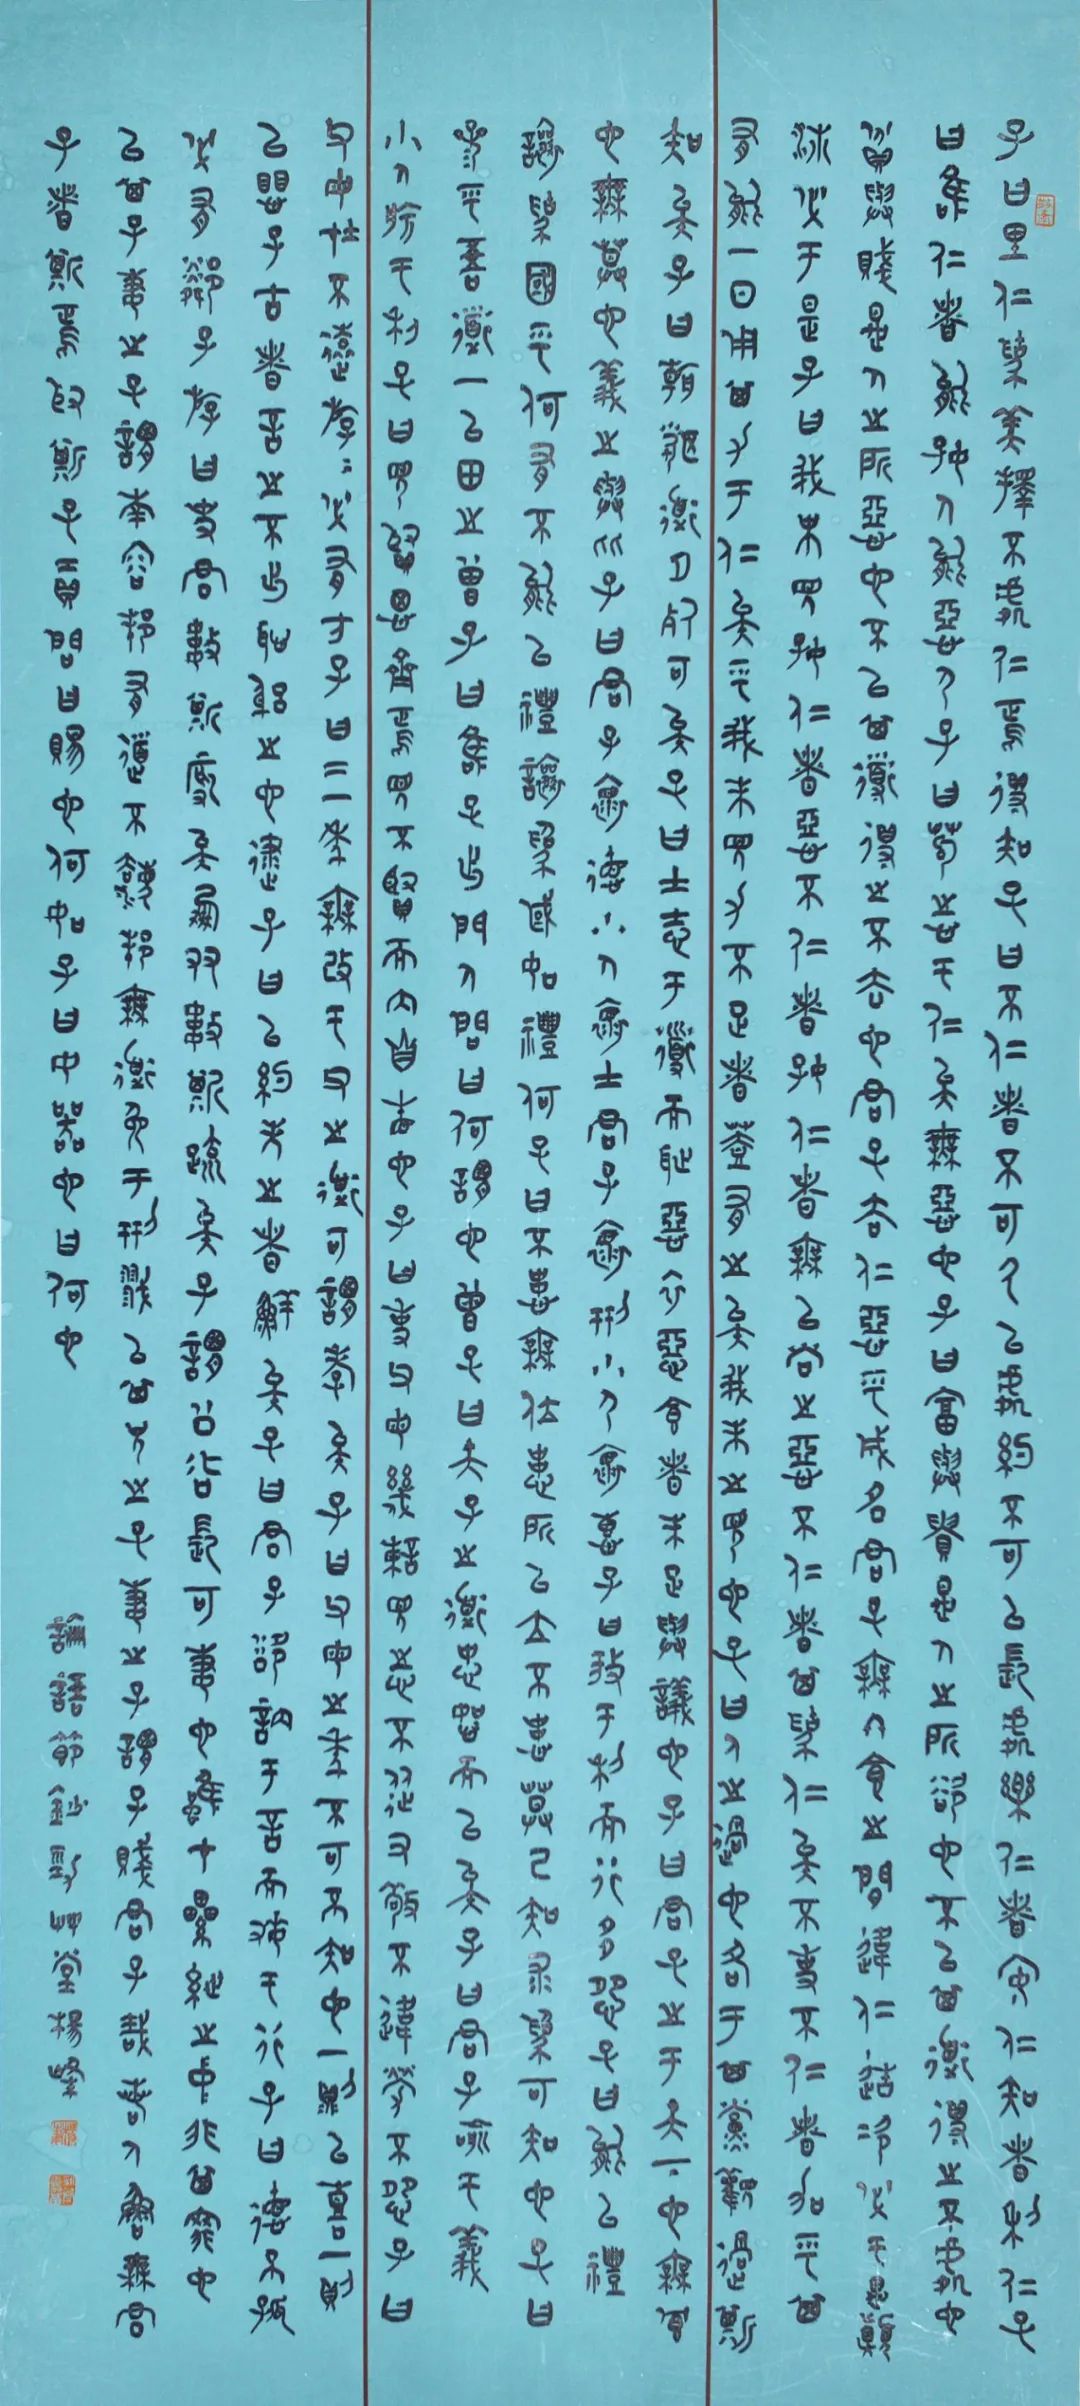 子曰里仁為美擇不處仁焉得知子曰不仁者不可久以處約不可以長處樂仁者安仁知者利仁子
曰唯仁者能好人能惡人子曰苟志于仁矣無惡也子曰富與貴是人之所欲也不以其道得之不處也
貧與賤是人之所惡也不以其道得之不去也君子去仁惡乎成名君子無終食之間違仁造次必于是顛
沛必于是子曰我未見好仁者惡不仁者好仁者無以尚之惡不仁者其為仁矣不使不仁者加乎其
有能一日用其力于仁矣乎我未見力不足者蓋有之矣我未之見也子曰人之過也各于其黨觀過斯
知矣子曰朝聞道夕死可矣子曰士志于道而恥惡衣惡食者未足與議也子曰君子之于天下也無適
也無莫也義之與比子曰君子懷德小人懷土君子懷刑小人懷惠子曰放于利而行多怨子曰能以禮
讓為國乎何有不能以禮讓為國如禮何子曰不患無位患所以立不患莫己知求為可知也子曰
參乎吾道一以貫之曾子曰唯子出門人問曰何謂也曾子曰夫子之道忠恕而已矣子曰君子喻于義
小人喻于利子曰見賢思齊焉見不賢而內自省也子曰事父母幾諫見志不從又敬不違勞不怨子曰
父母在不遠遊遊必有方子曰三年無改于父之道可謂孝矣子曰父母之年不可不知也一則以喜一則
以懼子古者言之不出恥躬之也逮子曰以約失之者鮮矣子曰君子欲訥于言而敏于行子曰德不孤
必有鄰子游曰事君數斯辱矣朋友數斯疏矣子謂公冶長可妻也雖在縲絏之中非其罪也
以其子妻之子謂南容邦有道不廢邦無道免于刑戮以其兄之子妻之子謂子賤君子哉若人魯無君
子者斯焉取斯子貢問曰賜也何如子曰女器也曰何也
論語節鈔艸堂楊